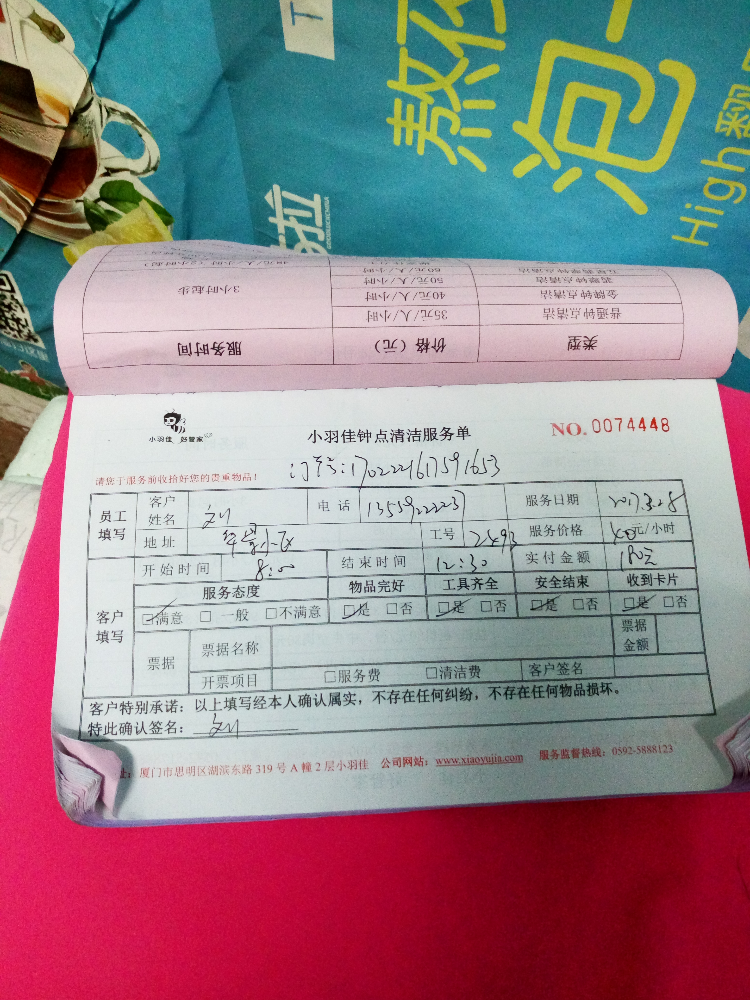 T
熬夜
泡
High翻
拉
3小时起步
50元/人/小时
40元/人/小时
金牌钟点清洁
35元/人/小时
普通钟点清洁
服务时间
价格（元）
类型
小羽佳 好管家
小羽佳钟点清洁服务单
NO. 0074448
请您于服务前收拾好您的贵重物品！
订单号：170222161759 1653
员工填写
客户姓名
电话 13559222237
服务日期 2017.3.28
地址
工号 2493
服务价格 40元/小时
客户填写
开始时间 8:00
结束时间 12:30
实付金额 180元
服务态度 物品完好 工具齐全 安全结束 收到卡片
☑满意 □一般 □不满意 ☑是 □否 ☑是 □否 ☑是 □否 ☑是 □否
票据
票据名称
票据金额
开票项目 □服务费 □清洁费 客户签名
客户特别承诺：以上填写经本人确认属实，不存在任何纠纷，不存在任何物品损坏。
特此确认签名：
址：厦门市思明区湖滨东路 319 号 A 幢 2 层小羽佳 公司网站：www.xiaoyujia.com 服务监督热线：0592-5888123